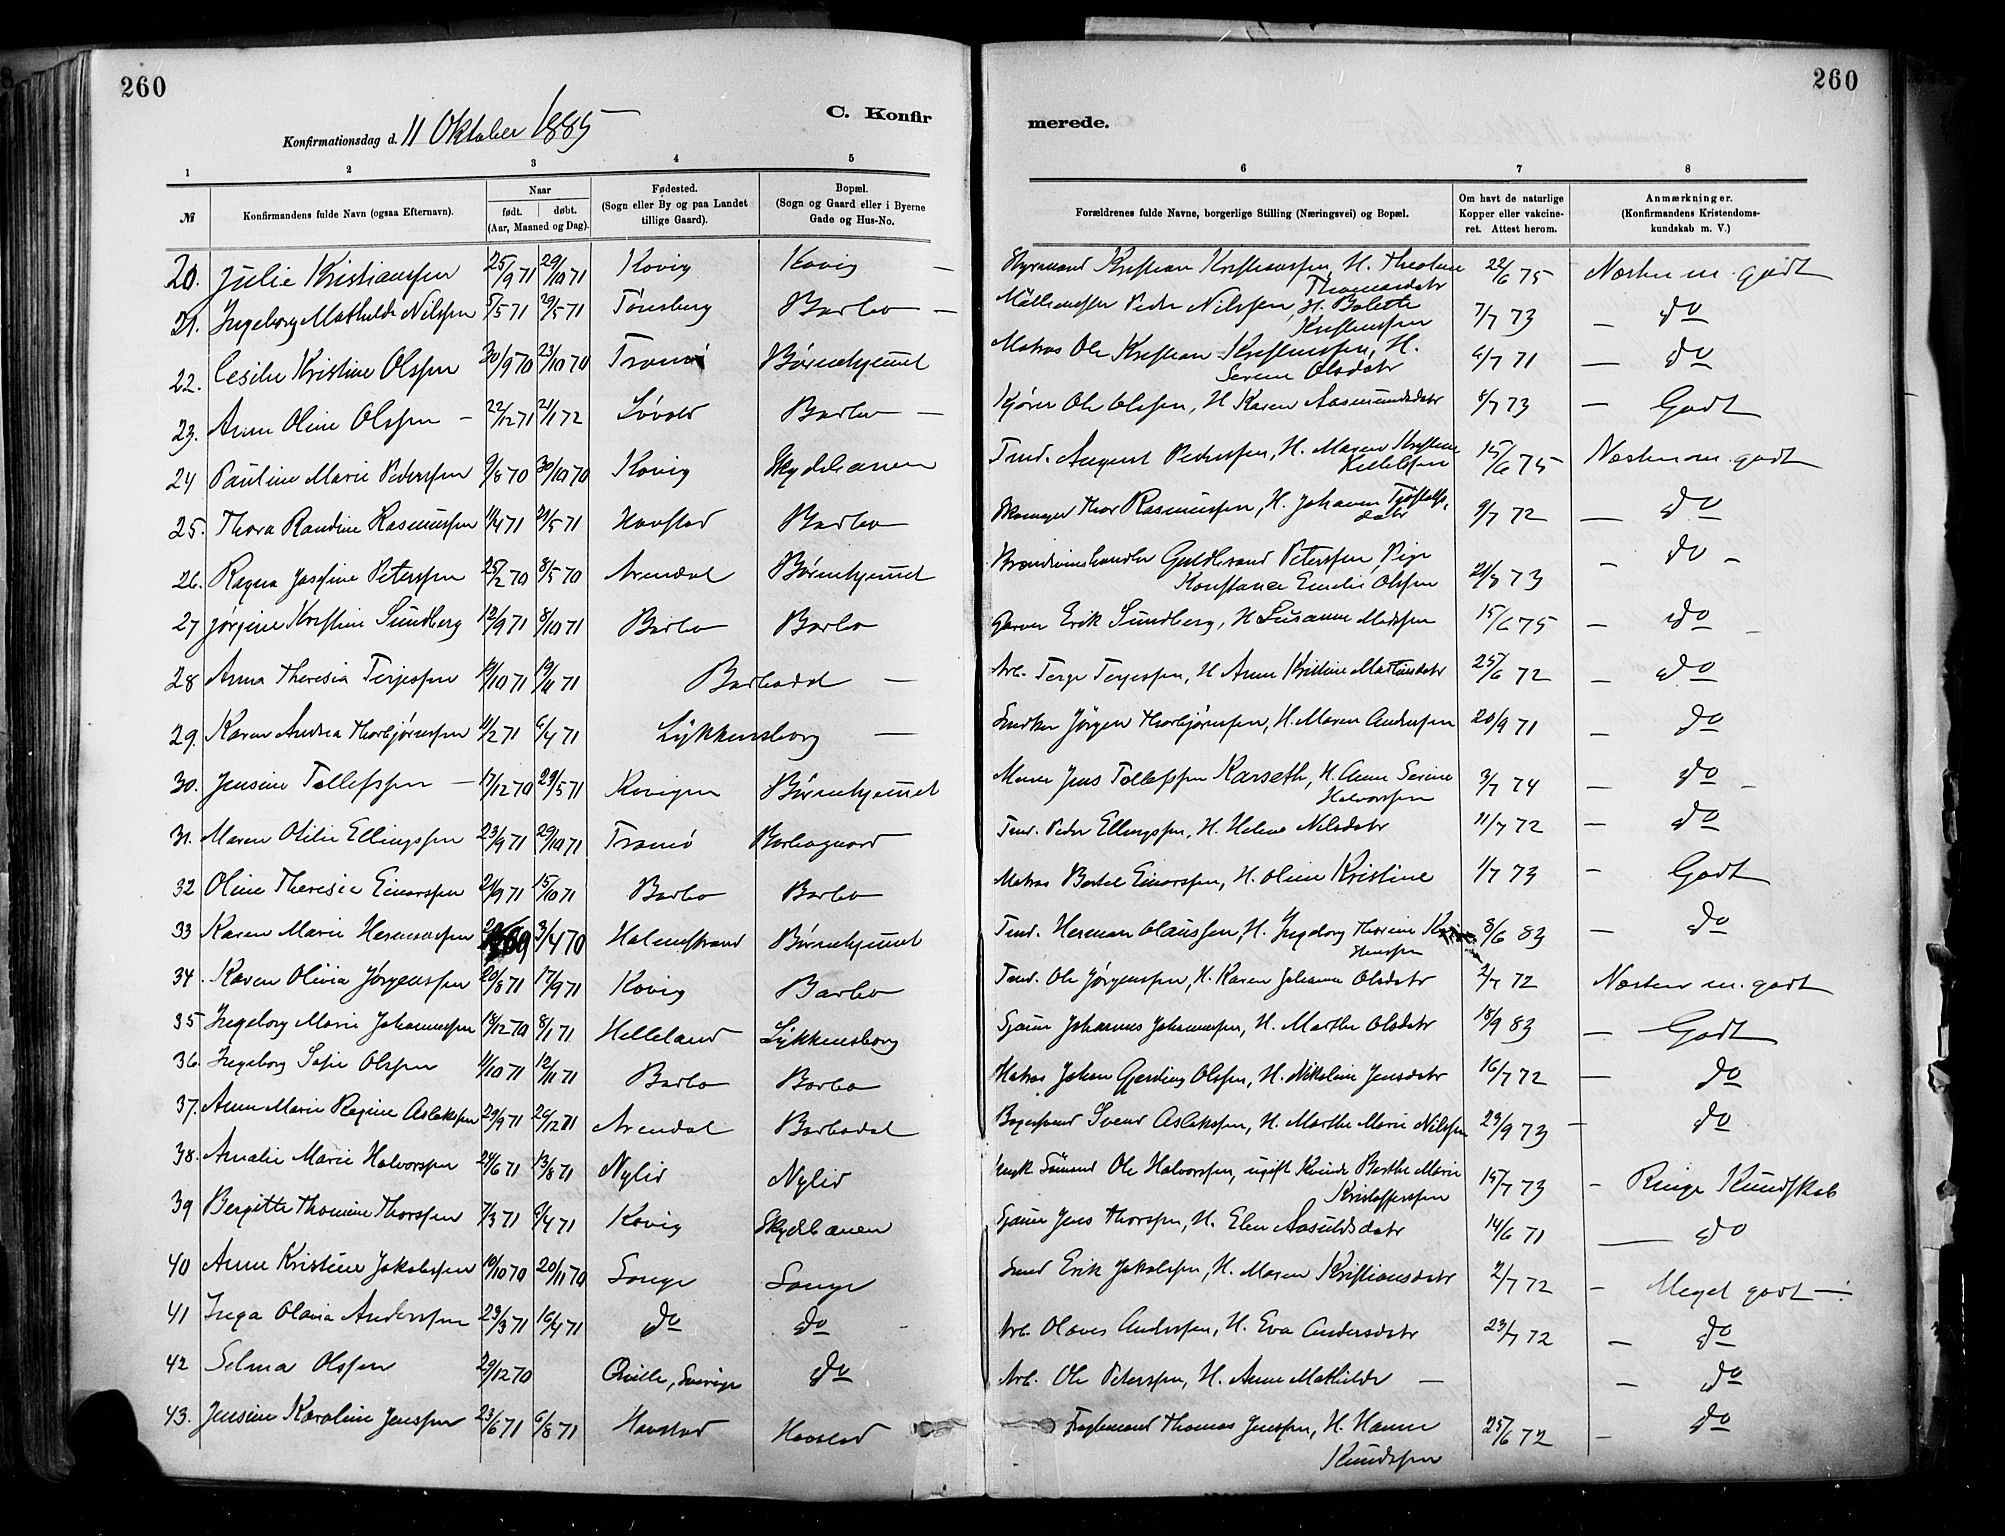 260
260
Konfirmationsdag d. 11 Oktober 1885
C. Konfir
merede.
1 2 3 4 5 6 7 8
№
Konfirmandens fulde Navn (ogsaa Efternavn).
Naar
født. døbt.
(Aar, Maaned og Dag).
Fødested.
(Sogn eller By og paa Landet
tillige Gaard).
Bopæl.
(Sogn og Gaard eller i Byerne
Gade og Hus-No.
Forældrenes fulde Navne, borgerlige Stilling (Næringsvei) og Bopæl.
Om havt de naturlige
Kopper eller vakcine-
ret. Attest herom.
Anmærkninger.
(Konfirmandens Kristendoms-
kundskab m. V.)
20. Julie Kristianssen 25/9 71 29/10 71 Kovig Kovig — Styrmand Kristian Kristianssen, H. Theoline Thomasdatr 22/6 75 Næsten m. godt
21. Ingeborg Mathilde Nilssen 5/5 71 29/5 71 Tønsberg Barbo — Peder Nilssen, H. Bolette Kristenssen 7/7 73 — do
22. Cesilie Kristine Olssen 30/9 70 23/10 70 Tromø Børnehjemmet Matros Ole Kristian Kristenssen, H. Serine Olsdatr 6/7 71 — do
23. Anne Oline Olssen — 22/12 71 21/1 72 Barbo — Kjører Ole Olssen, H. Karen Aasmundsdatr 8/7 73 — Godt
24 Pauline Marie Pederssen 9/8 70 30/10 70 Kovig Skydebanen Tmd. August Pederssen, H. Maren Kristine Killelssen 15/6 75 Næsten m. godt
25. Thora Randine Rasmussen 11/4 71 21/5 71 Havstad Barbo Skomager Thor Rasmussen, H. Johanne 9/7 72 — do
26. Ragna Josefine Peterssen 25/2 70 8/5 70 Arendal Børnehjemmet Brændevinshandler Guldbrand Peterssen, Pige Konstance Emilie Olssen 21/7 73 — do —
27 Jørgine Kristine Sundberg 12/9 71 8/10 71 Barbo Barbo Garver Erik Sundberg, H. Susanne Madssen 15/6 75 — do
28 Anna Theresia Terjessen 9/10 71 19/11 71 Barbodal — Arb. Terje Terjessen, H. Anne Kristine Martinsdatr 25/6 72 — do
29. Karen Andrea Thorbjørnssen 11/2 71 6/4 71 Lykkensborg — Snedker Jørgen Thorbjørnssen, H. Maren Anderssen 20/9 71 — do
30. Jensine Tollefssen — 17/12 70 29/5 71 Kovigen Børnehjemmet Murer Jens Tollefssen Karseth, H. Anne Serine Halvorssen 3/7 74 — do
31. Maren Otilie Ellingssen 23/9 71 29/10 71 Tromø Barbogaard Tmd. Peder Ellingssen, H. Helene Nilsdatr 11/7 72 — do
32 Oline Theresie Einarssen 21/9 71 15/10 71 Barbo Barbo Matros Bertel Einarssen, H. Oline Kristine 1/7 73 — Godt
33 Karen Marie Hermanssen 69 3/4 70 Holmestrand Børnehjemmet Tmd. Herman Claussen, H. Ingeborg Thorine 8/6 83 — do
34. Karen Olivia Jørgenssen 20/8 71 17/9 71 Kovig Barbo Tmd. Ole Jørgenssen, H. Karen Johanne Olsdatr 2/7 72 Næsten m. godt
35 Ingeborg Marie Johannessen 18/12 70 8/1 71 Helleland Lykkensborg Sjøm Johannes Johannessen, H. Marthe Olsdatr 18/9 83 — Godt
36. Ingeborg Sofie Olssen 11/10 71 12/11 71 Barbo Barbo Matros Johan Gjerding Olssen, H. Nikoline Jensdatr 16/7 72 — do
37. Anne Marie Regine Aslakssen 29/9 71 26/12 71 Arendal Barbodal Svend Aslakssen, H. Marthe Marie Nilssen 23/9 73 — do
38. Amalie Marie Halvorssen 24/6 71 13/8 71 Nylid Nylid Ole Halvorssen, ugift Kvinde Berthe Marie Kristofferssen 15/7 73 — Ringe Kundskab
39 Bergitte Thomine Thorssen 7/3 71 9/4 71 Kovig Skydebanen Sjøm Jens Thorssen, H. Elen Aasuldsdatr 14/6 71 — do
40 Anne Kristine Jakobssen 19/10 70 20/11 70 Songe Songe Smd Erik Jakobssen, H. Maren Kristiansdatr 2/7 72 — Meget godt —
41 Inga Olava Anderssen 29/3 71 16/4 71 do do Arb. Olaves Anderssen, H. Eva Andersdatr 23/7 72 — do
42 Selma Olssen 29/12 70 Qville, Sverige do Arb. Ole Peterssen, H. Anne Mathilde — — do
43. Jensine Karoline Jenssen 23/6 71 6/8 71 Havstad Havstad Fraglemand Thomas Jenssen, H. Hanne Knudssen 25/6 72 — do